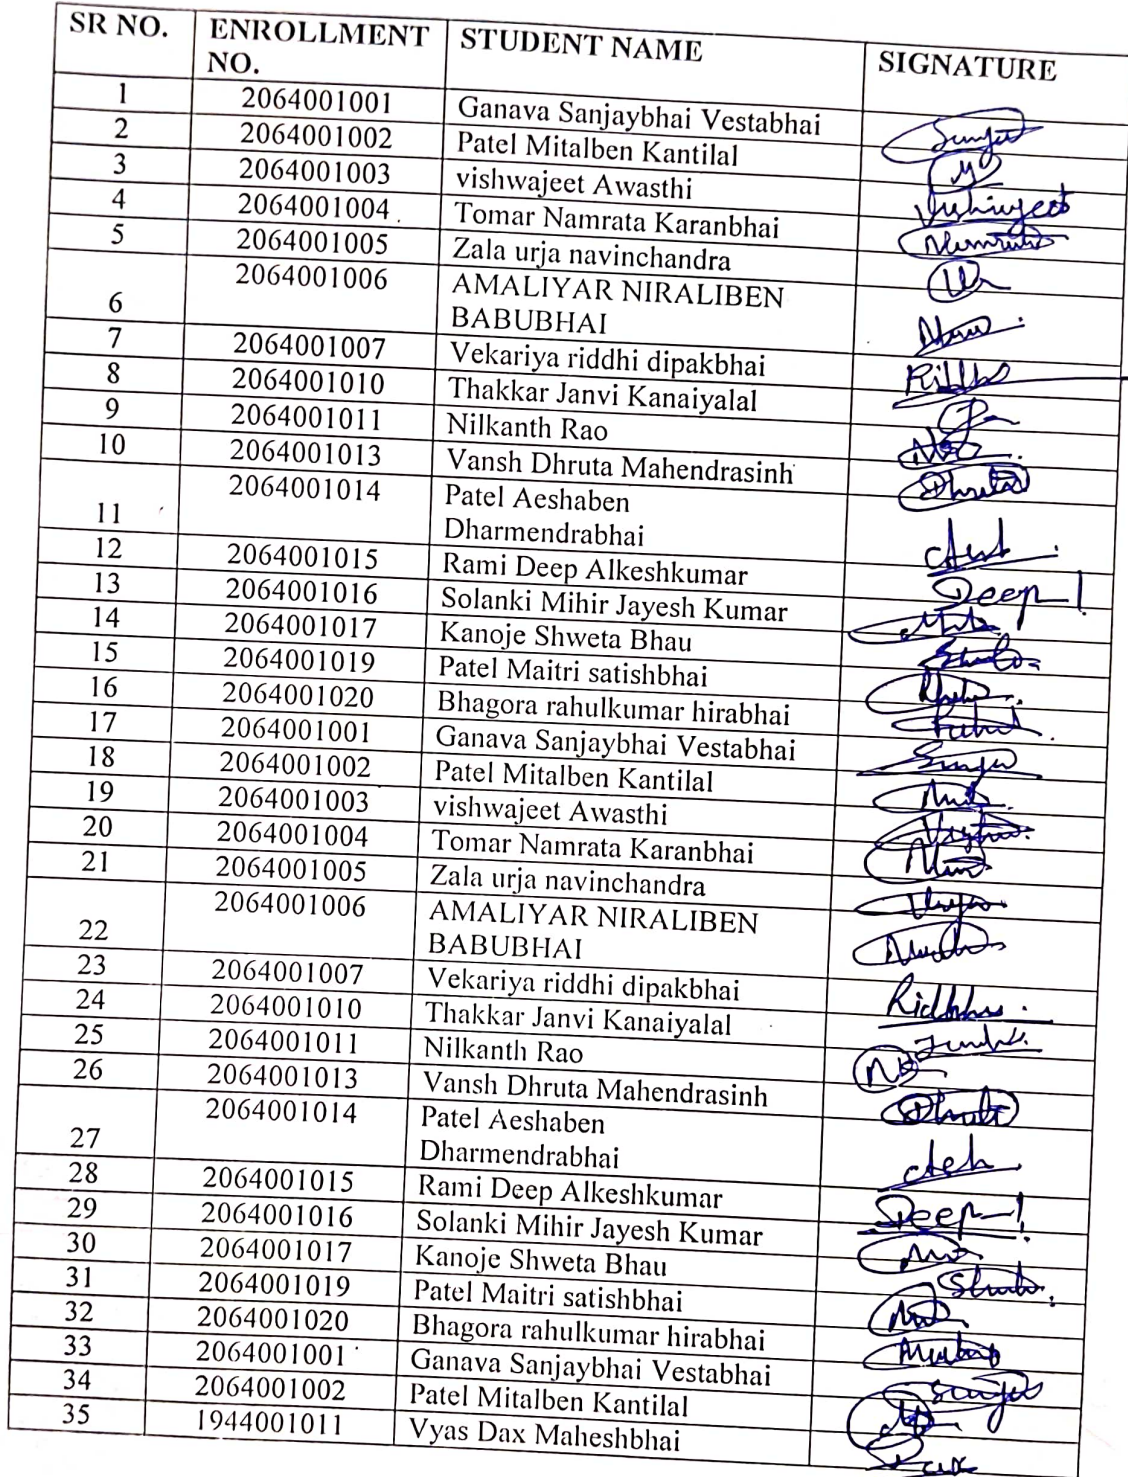 SR NO. ENROLLMENT NO. STUDENT NAME SIGNATURE
1 2064001001 Ganava Sanjaybhai Vestabhai
2 2064001002 Patel Mitalben Kantilal
3 2064001003 vishwajeet Awasthi
4 2064001004 Tomar Namrata Karanbhai
5 2064001005 Zala urja navinchandra
6 2064001006 AMALIYAR NIRALIBEN
BABUBHAI
7 2064001007 Vekariya riddhi dipakbhai
8 2064001010 Thakkar Janvi Kanaiyalal
9 2064001011 Nilkanth Rao
10 2064001013 Vansh Dhruta Mahendrasinh
11 2064001014 Patel Aeshaben
Dharmendrabhai
12 2064001015 Rami Deep Alkeshkumar Deep
13 2064001016 Solanki Mihir Jayesh Kumar
14 2064001017 Kanoje Shweta Bhau
15 2064001019 Patel Maitri satishbhai
16 2064001020 Bhagora rahulkumar hirabhai
17 2064001001 Ganava Sanjaybhai Vestabhai
18 2064001002 Patel Mitalben Kantilal
19 2064001003 vishwajeet Awasthi
20 2064001004 Tomar Namrata Karanbhai
21 2064001005 Zala urja navinchandra
22 2064001006 AMALIYAR NIRALIBEN
BABUBHAI
23 2064001007 Vekariya riddhi dipakbhai
24 2064001010 Thakkar Janvi Kanaiyalal
25 2064001011 Nilkanth Rao
26 2064001013 Vansh Dhruta Mahendrasinh
27 2064001014 Patel Aeshaben
Dharmendrabhai
28 2064001015 Rami Deep Alkeshkumar Deep
29 2064001016 Solanki Mihir Jayesh Kumar
30 2064001017 Kanoje Shweta Bhau
31 2064001019 Patel Maitri satishbhai
32 2064001020 Bhagora rahulkumar hirabhai
33 2064001001 Ganava Sanjaybhai Vestabhai
34 2064001002 Patel Mitalben Kantilal
35 1944001011 Vyas Dax Maheshbhai